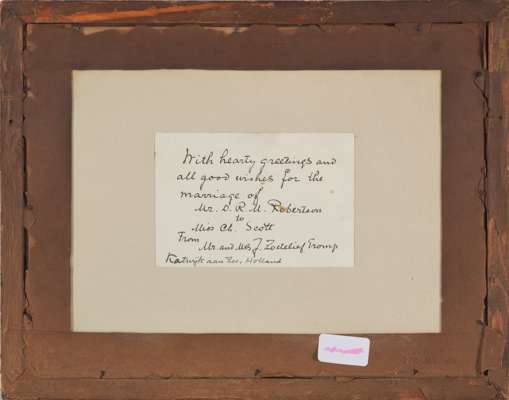 With hearty greetings and
all good wishes for the
marriage of
Mr. D. R. M. Robertson
to
Miss Ch. Scott
From
Mr. and Mrs J. Zoetelief Tromp
Katwijk aan Zee, Holland